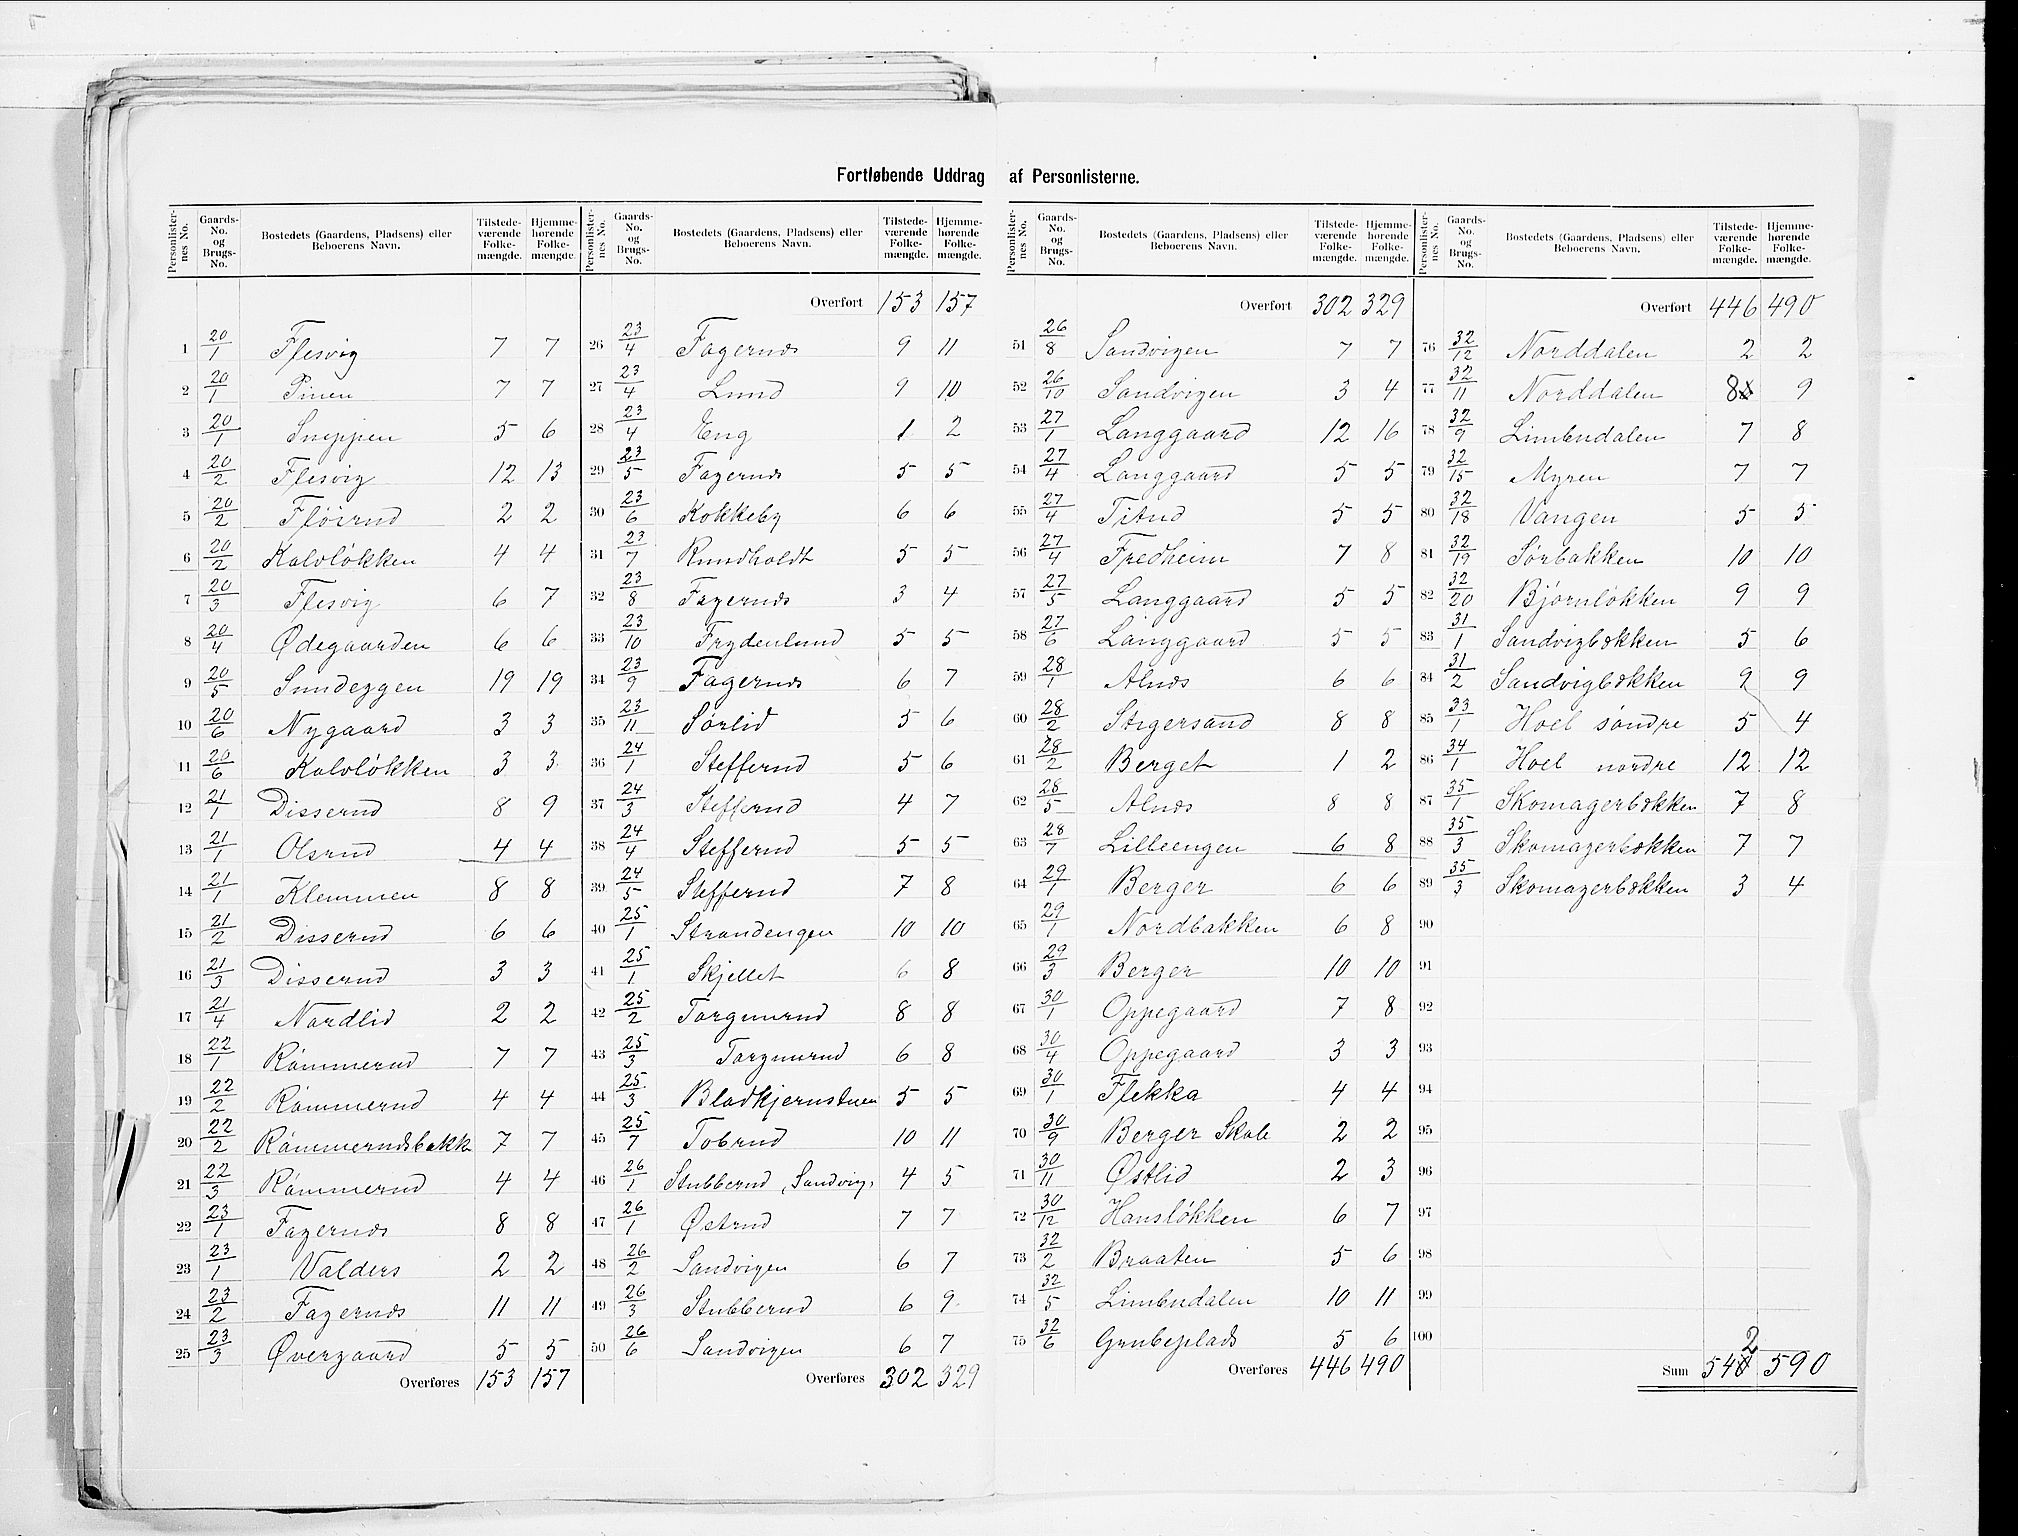 Fortløbende Uddrag af Personlisterne.
Personlister-nes No. Gaards-No. og Brugs-No. Bostedets (Gaardens, Pladsens) eller Beboerens Navn. Tilstede-værende Folke-mængde. Hjemme-hørende Folke-mængde.
1 20/1 Flesvig 7 7
2 20/1 Pinen 7 7
3 20/1 Sneppen 5 6
4 20/2 Flesvig 12 13
5 20/2 Fløirud 2 2
6 20/2 Kalvløkken 4 4
7 20/3 Flesvig 6 7
8 20/4 Ødegaarden 6 6
9 20/5 Sundeggen 19 19
10 20/6 Nygaard 3 3
11 20/6 Kalvløkken 3 3
12 21/1 Disserud 8 9
13 21/1 Olsrud 4 4
14 21/1 Klemmen 8 8
15 21/2 Disserud 6 6
16 21/3 Disserud 3 3
17 21/4 Nordlid 2 2
18 22/1 Rømmerud 7 7
19 22/2 Rømmerud 4 4
20 22/2 Rømmerudsbakk 7 7
21 22/3 Rømmerud 4 4
22 23/1 Fagernæs 8 8
23 23/1 Valders 2 2
24 23/2 Fagernæs 11 11
25 23/3 Øvergaard 5 5
Overføres 153 157
Personlister-nes No. Gaards-No. og Brugs-No. Bostedets (Gaardens, Pladsens) eller Beboerens Navn. Tilstede-værende Folke-mængde. Hjemme-hørende Folke-mængde.
Overført 153 157
26 23/4 Fagernæs 9 11
27 23/4 Lund 9 10
28 23/4 Eng 1 2
29 23/5 Fagernæs 5 5
30 23/6 Kokkeby 6 6
31 23/7 Rundholdt 5 5
32 23/8 Fagernæs 3 4
33 23/10 Frydenlund 5 5
34 23/9 Fagernæs 6 7
35 23/11 Sørlid 5 6
36 24/1 Stefferud 5 6
37 24/3 Stefferud 4 7
38 24/4 Stefferud 5 5
39 24/5 Stefferud 7 8
40 25/1 Strandengen 10 10
41 25/1 Skjellet 6 8
42 25/2 Torgunrud 8 8
43 25/3 Torgunrud 6 8
44 25/3 Bladkjernstuen 5 5
45 25/7 Tobrud 10 11
46 26/1 Stubberud, Sandvig, 4 5
47 26/1 Østrud 7 7
48 26/2 Sandvigen 6 7
49 26/3 Stubberud 6 9
50 26/6 Sandvigen 6 7
Overføres 302 329
Personlister-nes No. Gaards-No. og Brugs-No. Bostedets (Gaardens, Pladsens) eller Beboerens Navn. Tilstede-værende Folke-mængde. Hjemme-hørende Folke-mængde.
Overført 302 329
51 26/8 Sandvigen 7 7
52 26/10 Sandvigen 3 4
53 27/1 Langgaard 12 16
54 27/4 Langgaard 5 5
55 27/4 Titud 5 5
56 27/4 Fredheim 7 8
57 27/5 Langgaard 5 5
58 27/6 Langgaard 5 5
59 28/1 Alnæs 6 6
60 28/2 Stigersand 8 8
61 28/2 Berget 1 2
62 28/5 Alnæs 8 8
63 28/7 Lilleengen 6 8
64 29/1 Berger 6 6
65 29/1 Nordbakken 6 8
66 29/3 Berger 10 10
67 30/1 Oppegaard 7 8
68 30/4 Oppegaard 3 3
69 30/1 Flekka 4 4
70 30/9 Berger Skole 2 2
71 30/11 Østlid 2 3
72 30/12 Hansløkken 6 7
73 32/2 Braaten 5 6
74 32/5 Limbudalen 10 11
75 32/6 Grubeplads 5 6
Overføres 446 490
Personlister-nes No. Gaards-No. og Brugs-No. Bostedets (Gaardens, Pladsens) eller Beboerens Navn. Tilstede-værende Folke-mængde. Hjemme-hørende Folke-mængde.
Overført 446 490
76 32/12 Norddalen 2 2
77 32/11 Norddalen 8 9
78 32/9 Limbudalen 7 8
79 32/15 Myren 7 7
80 32/18 Vangen 5 5
81 32/19 Sørbakken 10 10
82 32/20 Bjørnløkken 9 9
83 31/1 Sandvigbækken 5 6
84 31/2 Sandvigbækken 9 9
85 33/1 Hoel søndre 5 4
86 34/1 Hoel nordre 12 12
87 35/1 Skomagerbækken 7 8
88 35/3 Skomagerbækken 7 7
89 35/3 Skomagerbækken 3 4
90
91
92
93
94
95
96
97
98
99
100
2
Sum 540 590